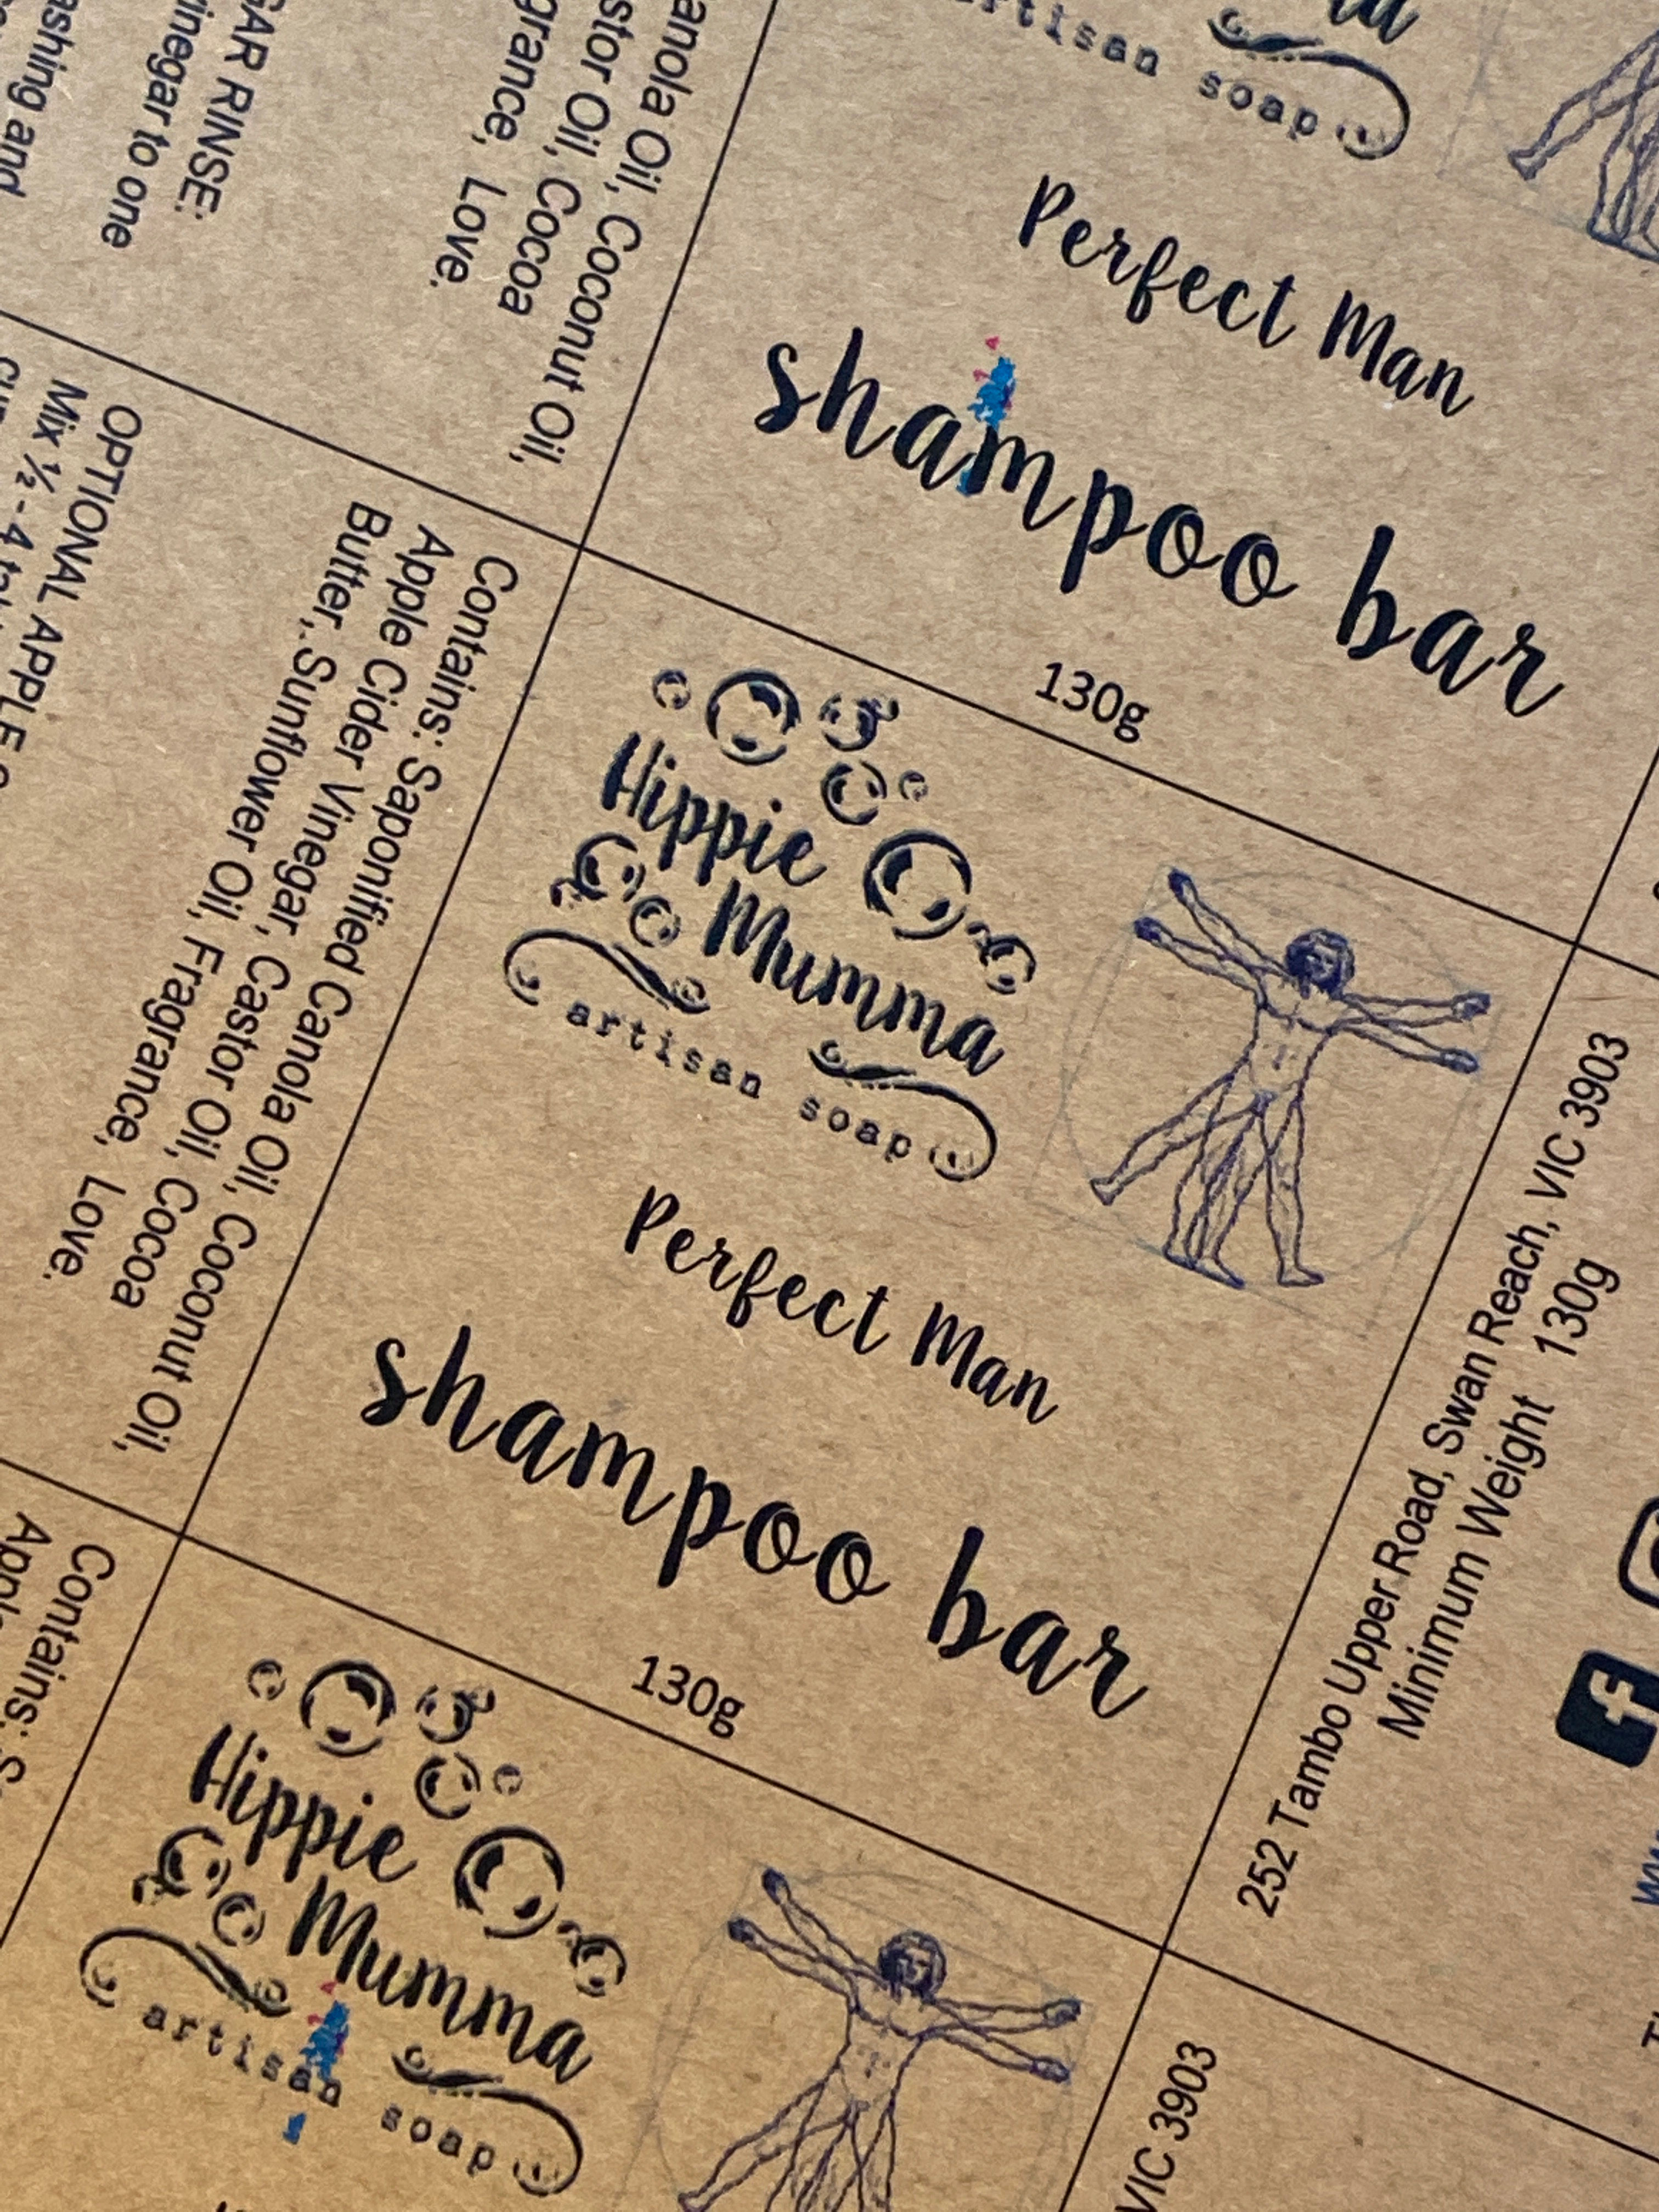 GAR RINSE:
vinegar to one
ashing and
anola Oil, Coconut Oil,
stor Oil, Cocoa
grance, Love.
artisan soap
Perfect Man
shampoo bar
130g
OPTIONAL APPLE
Mix ½ - 4
Contains: Saponified Canola Oil, Coconut Oil,
Apple Cider Vinegar, Castor Oil, Cocoa
Butter, Sunflower Oil, Fragrance, Love.
Hippie
Mumma
artisan soap
Perfect Man
shampoo bar
130g
252 Tambo Upper Road, Swan Reach, VIC 3903
Minimum Weight 130g
Contains:
Hippie
Mumma
artisan soap
VIC 3903